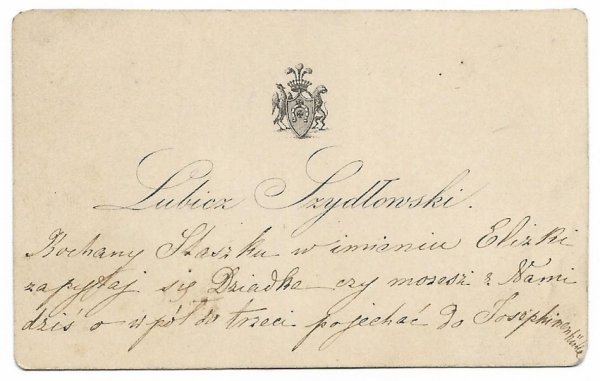 Lubicz Szydłowski.
Kochany Staszku w imieniu Elizki
zapytaj się Dziadka czy możesz z Nami
dziś o wpół do trzeci pojechać do Josephinenhütte